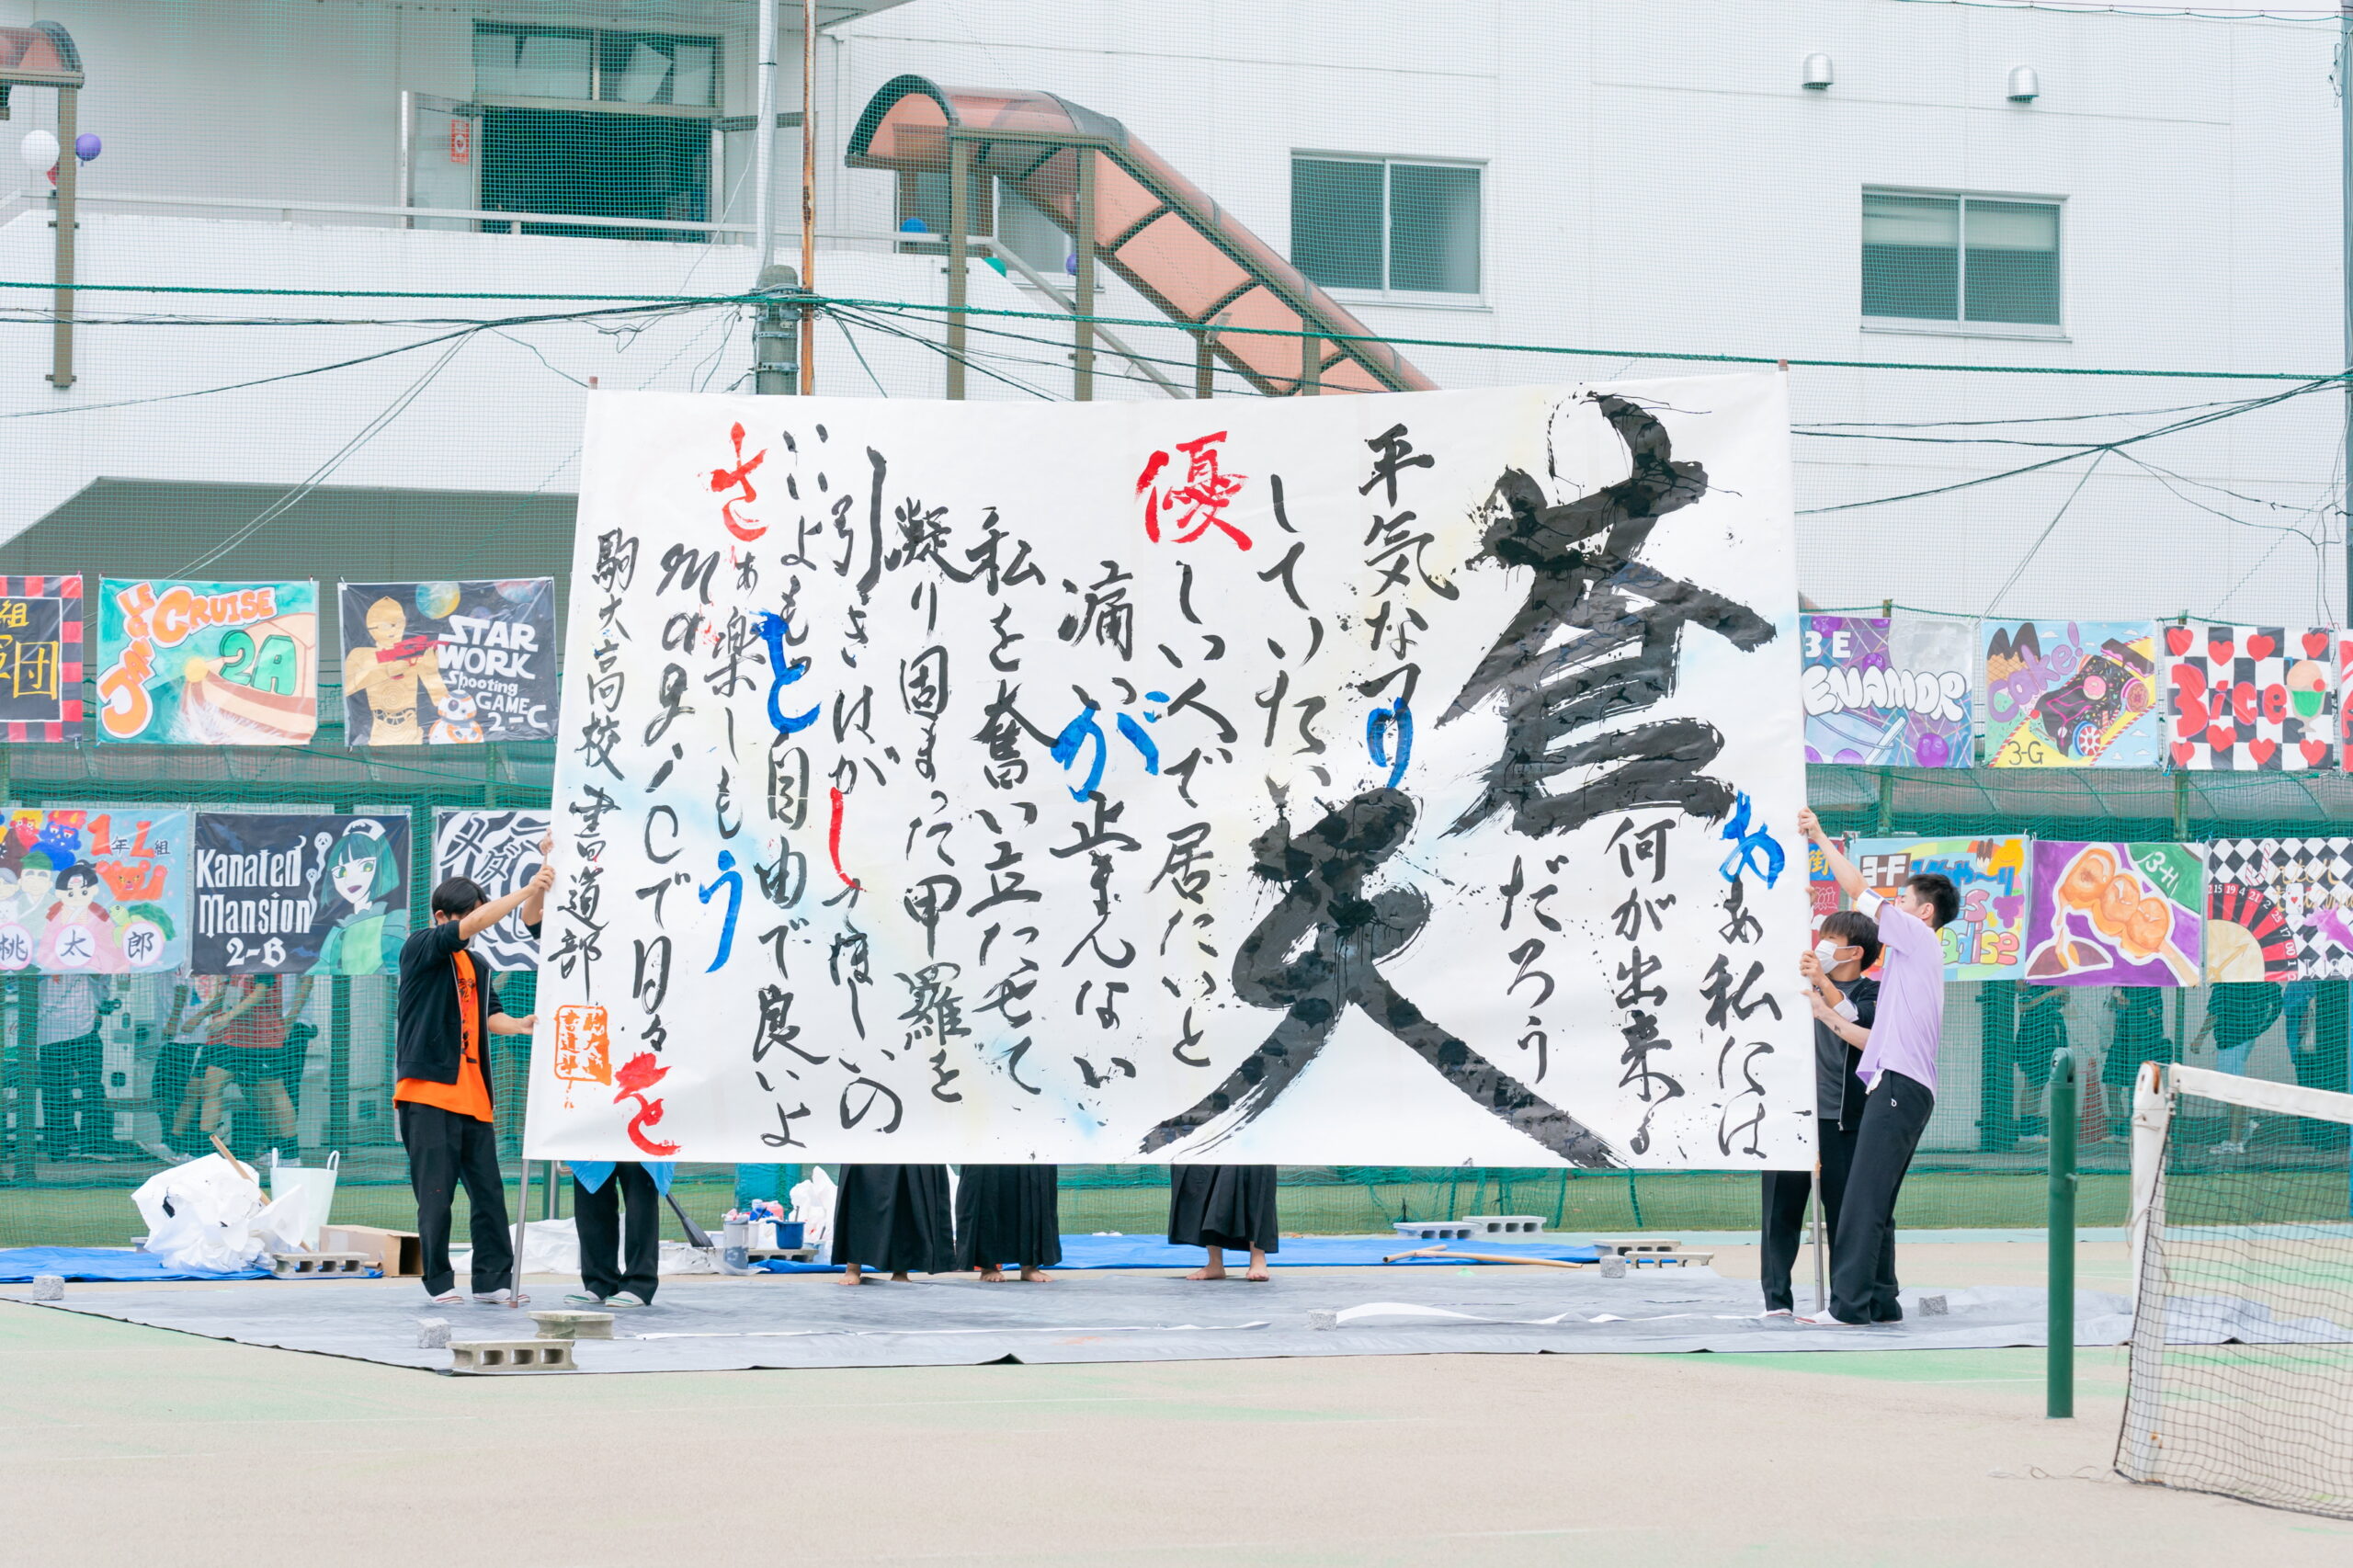 蒼天
あぁ私には
何が出来る
だろう
平気なフリ
していたい
優しい人で居たいと
痛いが止まんない
私を奮い立たせて
凝り固まった甲羅を
引きはがしてほしいの
いいよもっと自由で良いよ
さぁ楽しもう
Magicで日々を
駒大高校 書道部
組
団
CRUISE
2A
STAR
WORK
Shooting
GAME
2-C
3E
ENAMOR
Cake!
3-G
3ice
1年L組
桃太郎
Kanated
Mansion
2-B
3-F
3-H